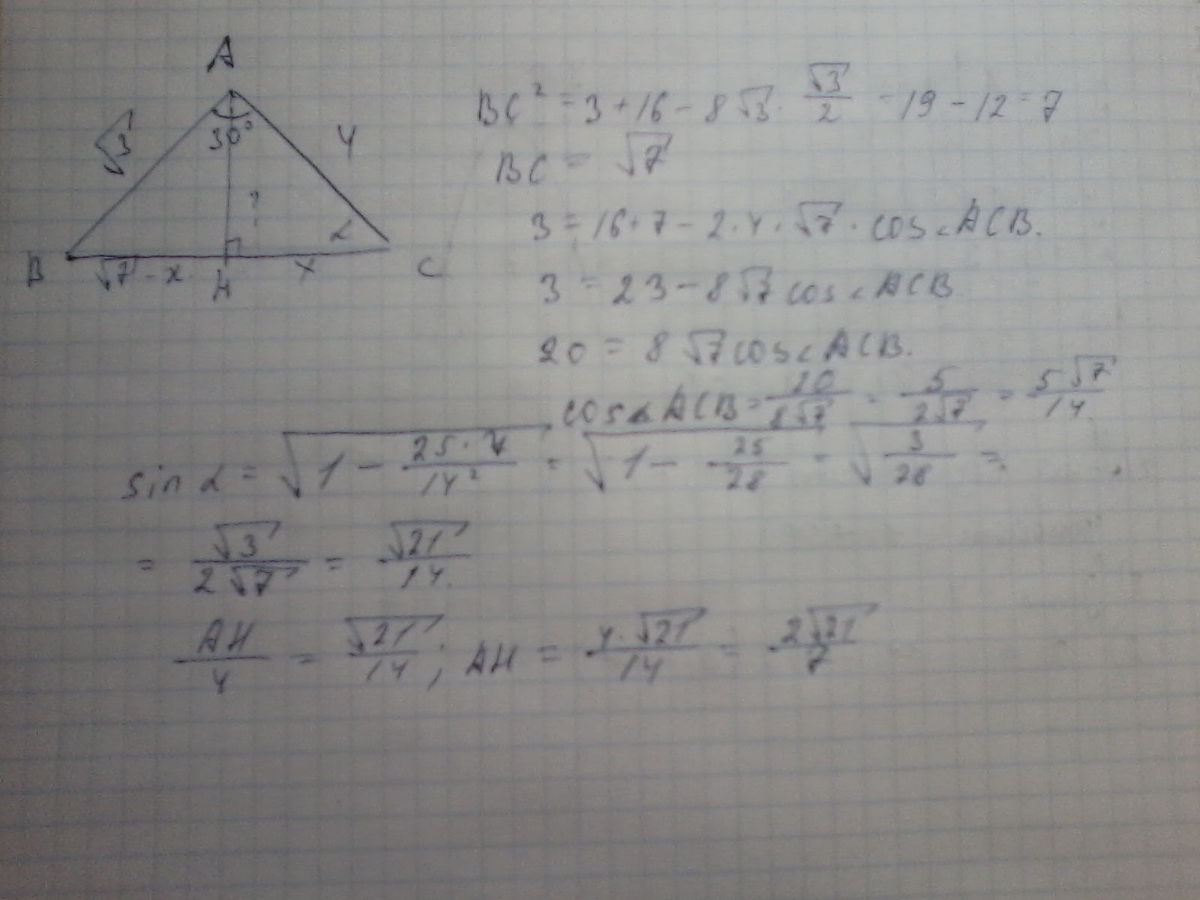 A
30°
√3
4
?
α
B
√7 - x
H
x
C
BC² = 3 + 16 - 8√3 · √3/2 = 19 - 12 = 7
BC = √7
3 = 16 + 7 - 2 · 4 · √7 · cos∠ACB.
3 = 23 - 8√7 cos∠ACB
20 = 8√7 cos∠ACB.
cos∠ACB = 20/8√7 = 5/2√7 = 5√7/14.
sin α = √(1 - 25·7/14²) = √(1 - 25/28) = √(3/28) =
= √3/2√7 = √21/14.
AH/4 = √21/14; AH = 4·√21/14 = 2√21/7